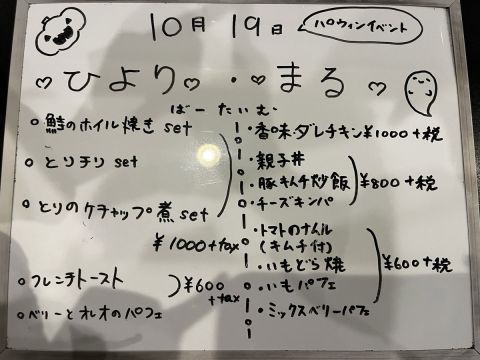 10月19日 ハロウィンイベント
♡ひより♡・♡まる♡
ばーたいむ
○ 鮭のホイル焼き set
○ とりチリ set
○ とりのケチャップ煮 set
¥1000+tax
○ フレンチトースト
○ ベリーとオレオのパフェ
¥600+tax
・香味ダレチキン ¥1000+税
・親子丼
・豚キムチ炒飯
・チーズキンパ
¥800+税
・トマトのナムル
(キムチ付)
・いもどら焼
・いもパフェ
・ミックスベリーパフェ
¥600+税